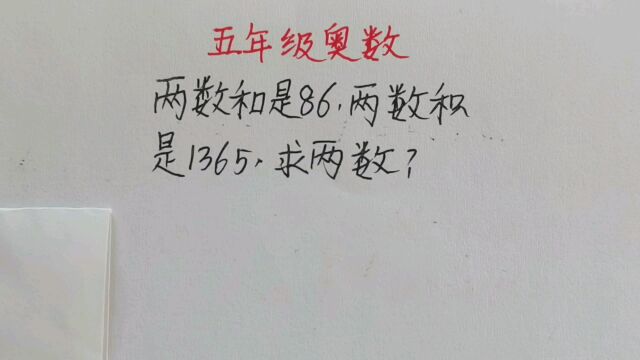 五年级奥数
两数和是86,两数积
是1365,求两数?